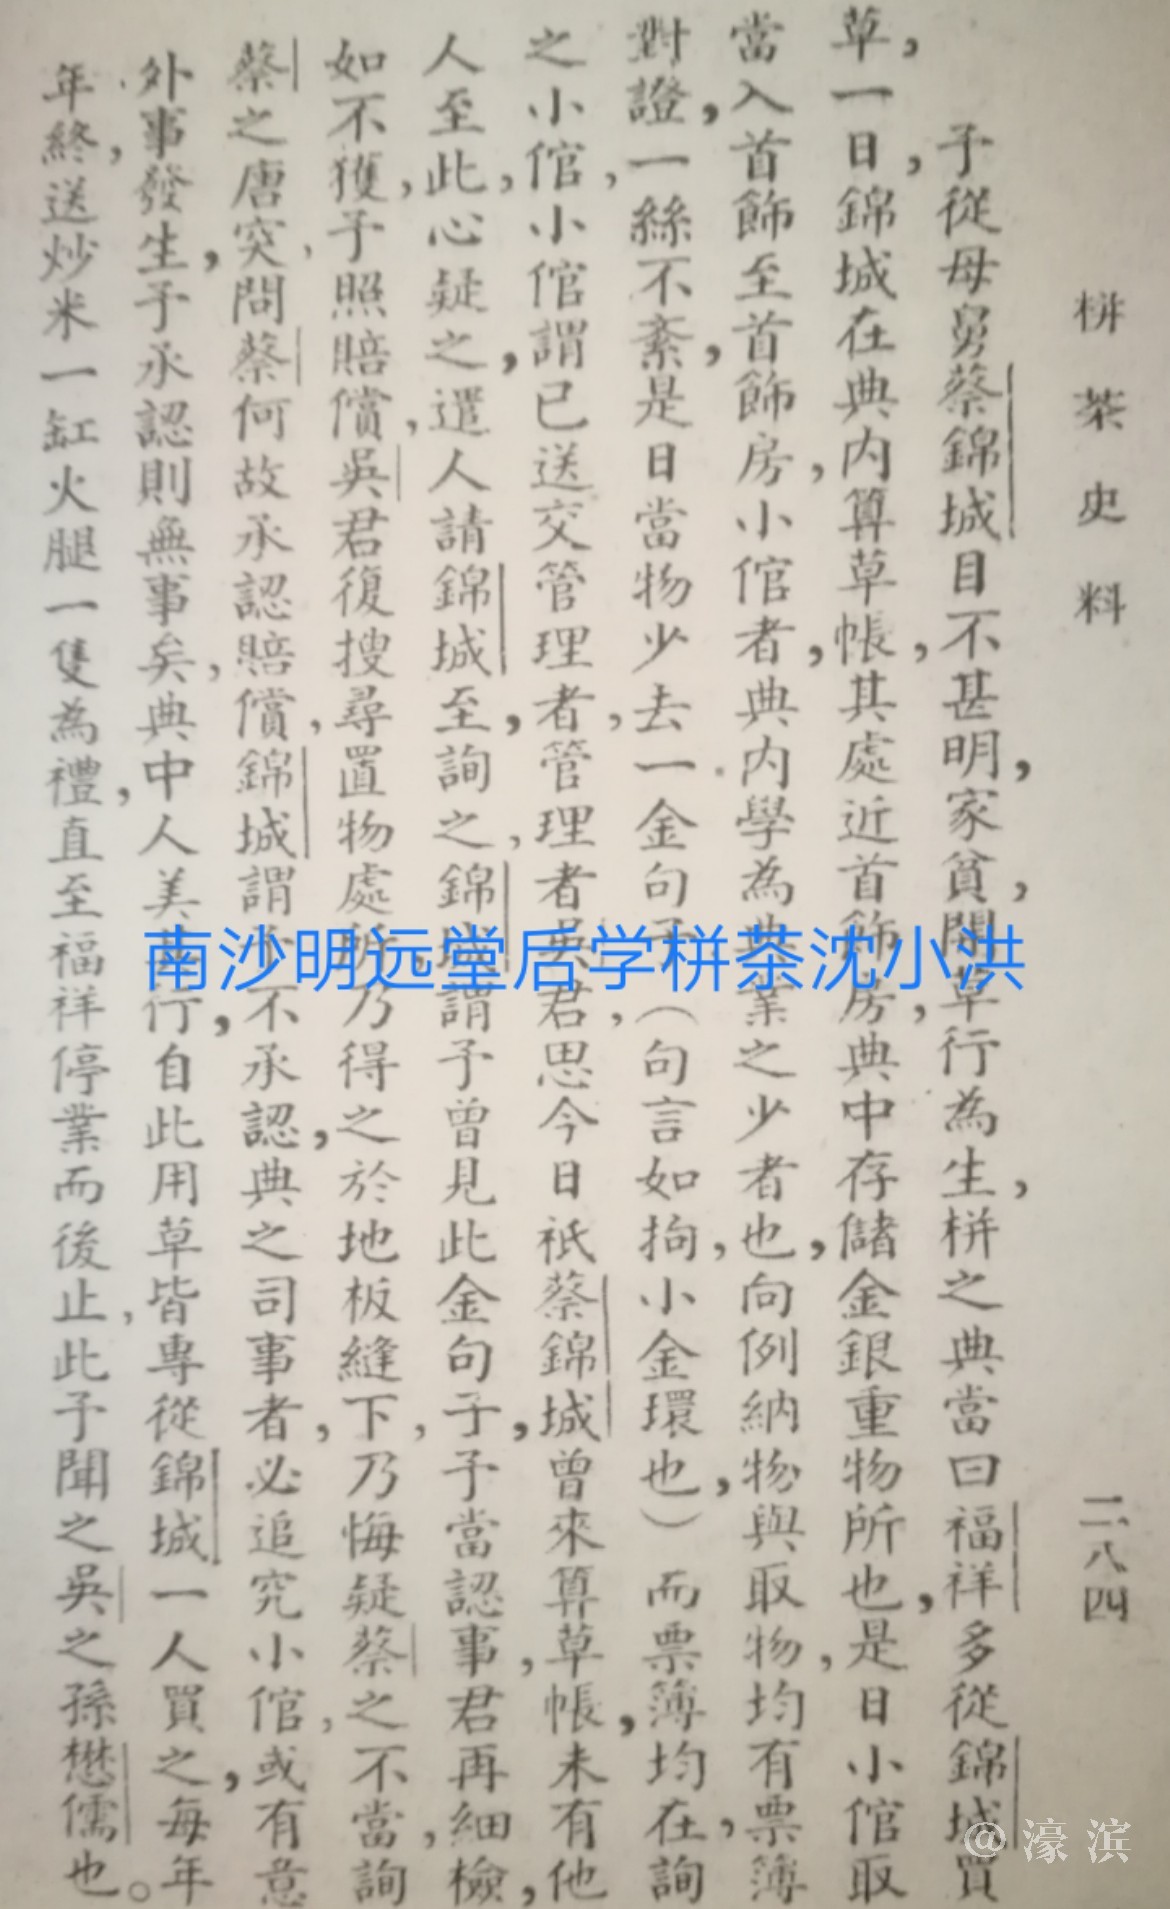 栟茶史料
二八四
予從母舅蔡錦城目不甚明，家貧，開草行為生，栟之典當曰福祥多從錦城買
草，一日，錦城在典内算草帳，其處近首飾房，典中存儲金銀重物所也，是日小倌取
當入首飾至首飾房，小倌者，典内學為典業之少者也，向例納物與取物，均有票簿
對證，一絲不紊，是日當物少去一金句子（句言如拘，小金環也）而票簿均在，詢
之小倌，小倌謂已送交管理者，管理者吳君，思今日祇蔡錦城曾來算草帳，未有他
人至此，心疑之，遣人請錦城至，詢之，錦城謂予曾見此金句子，予當認事，君再細檢，
如不獲，予照賠償，吳君復搜尋置物處所，乃得之於地板縫下，乃悔疑蔡之不當，詢
蔡之唐突，問蔡何故承認賠償，錦城謂予不承認，典之司事者，必追究小倌，或有意
外事發生，予承認則無事矣，典中人美其行，自此用草皆專從錦城一人買之，每年
年終，送炒米一缸火腿一隻為禮，直至福祥停業而後止，此予聞之吳之孫懋儒也。
南沙明远堂后学栟茶沈小洪
@濠滨